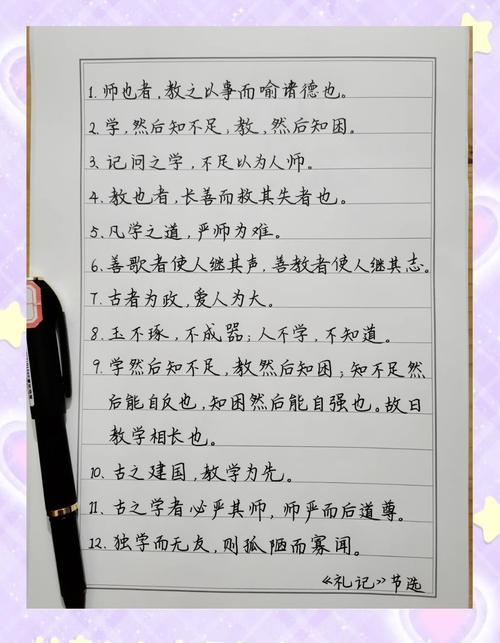 1. 师也者，教之以事而喻诸德也。
2. 学，然后知不足，教，然后知困。
3. 记问之学，不足以为人师。
4. 教也者，长善而救其失者也。
5. 凡学之道，严师为难。
6. 善歌者使人继其声，善教者使人继其志。
7. 古者为政，爱人为大。
8. 玉不琢，不成器；人不学，不知道。
9. 学然后知不足，教然后知困；知不足然
后能自反也，知困然后能自强也。故曰
教学相长也。
10. 古之建国，教学为先。
11. 古之学者必严其师，师严而后道尊。
12. 独学而无友，则孤陋而寡闻。
《礼记》节选